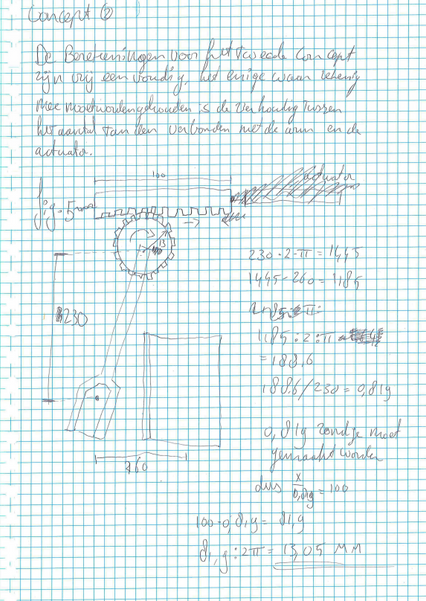 Concept 2
De Berekeningen voor het tweede concept
zijn vrij eenvoudig, het enige waar rekening
mee moet worden gehouden is de verhouding tussen
het aantal tanden verbonden met de arm en de
actuator.
100
actuator
fig. 5
13
230
260
230 · 2 · π = 1445
1445 - 260 = 1185
1185 : 2 : π
= 188.6
188.6/230 = 0,819
0,819 rondje moet
gemaakt worden
dus x/0,819 = 100
100 · 0,819 = 81,9
81,9 : 2π = 13,05 MM